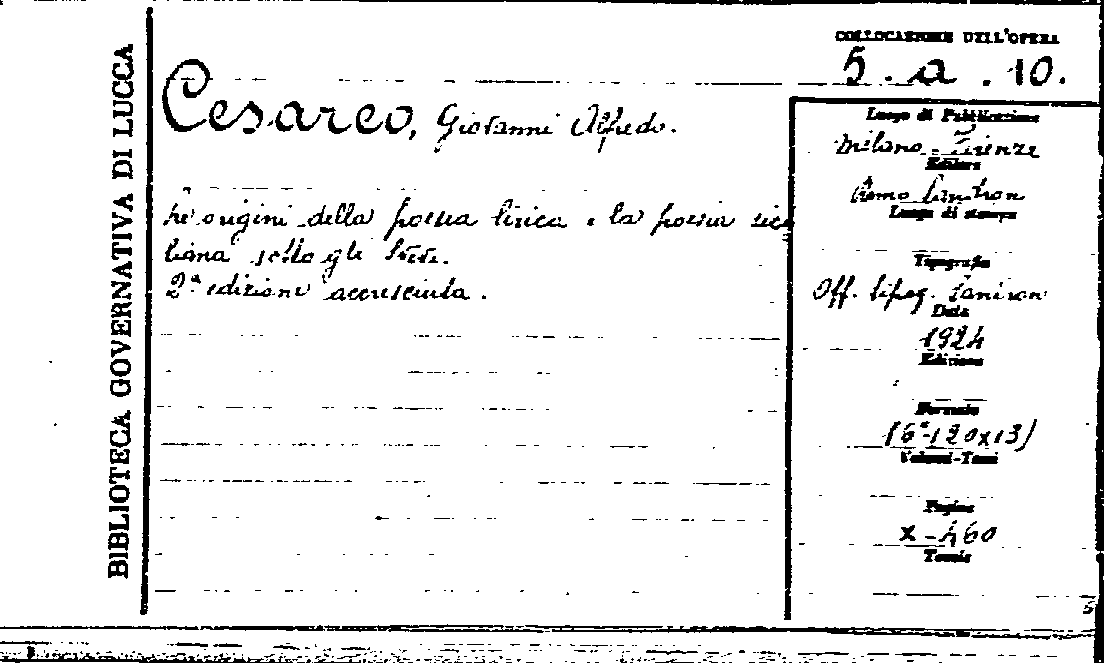 BIBLIOTECA GOVERNATIVA DI LUCCA
COLLOCAZIONE DELL'OPERA
5. a. 10.
Cesareo, Giovanni Alfredo.
Le origini della poesia lirica e la poesia sici
liana sotto gli Svevi.
2ª edizione accresciuta.
Luogo di Pubblicazione
Milano - Firenze
Editore
Remo Sandron
Luogo di stampa
Tipografia
Off. tipog. Sandron
Data
1924
Edizione
Formato
16°-(20x13)
Volumi-Tomi
Pagine
X-460
Tavole